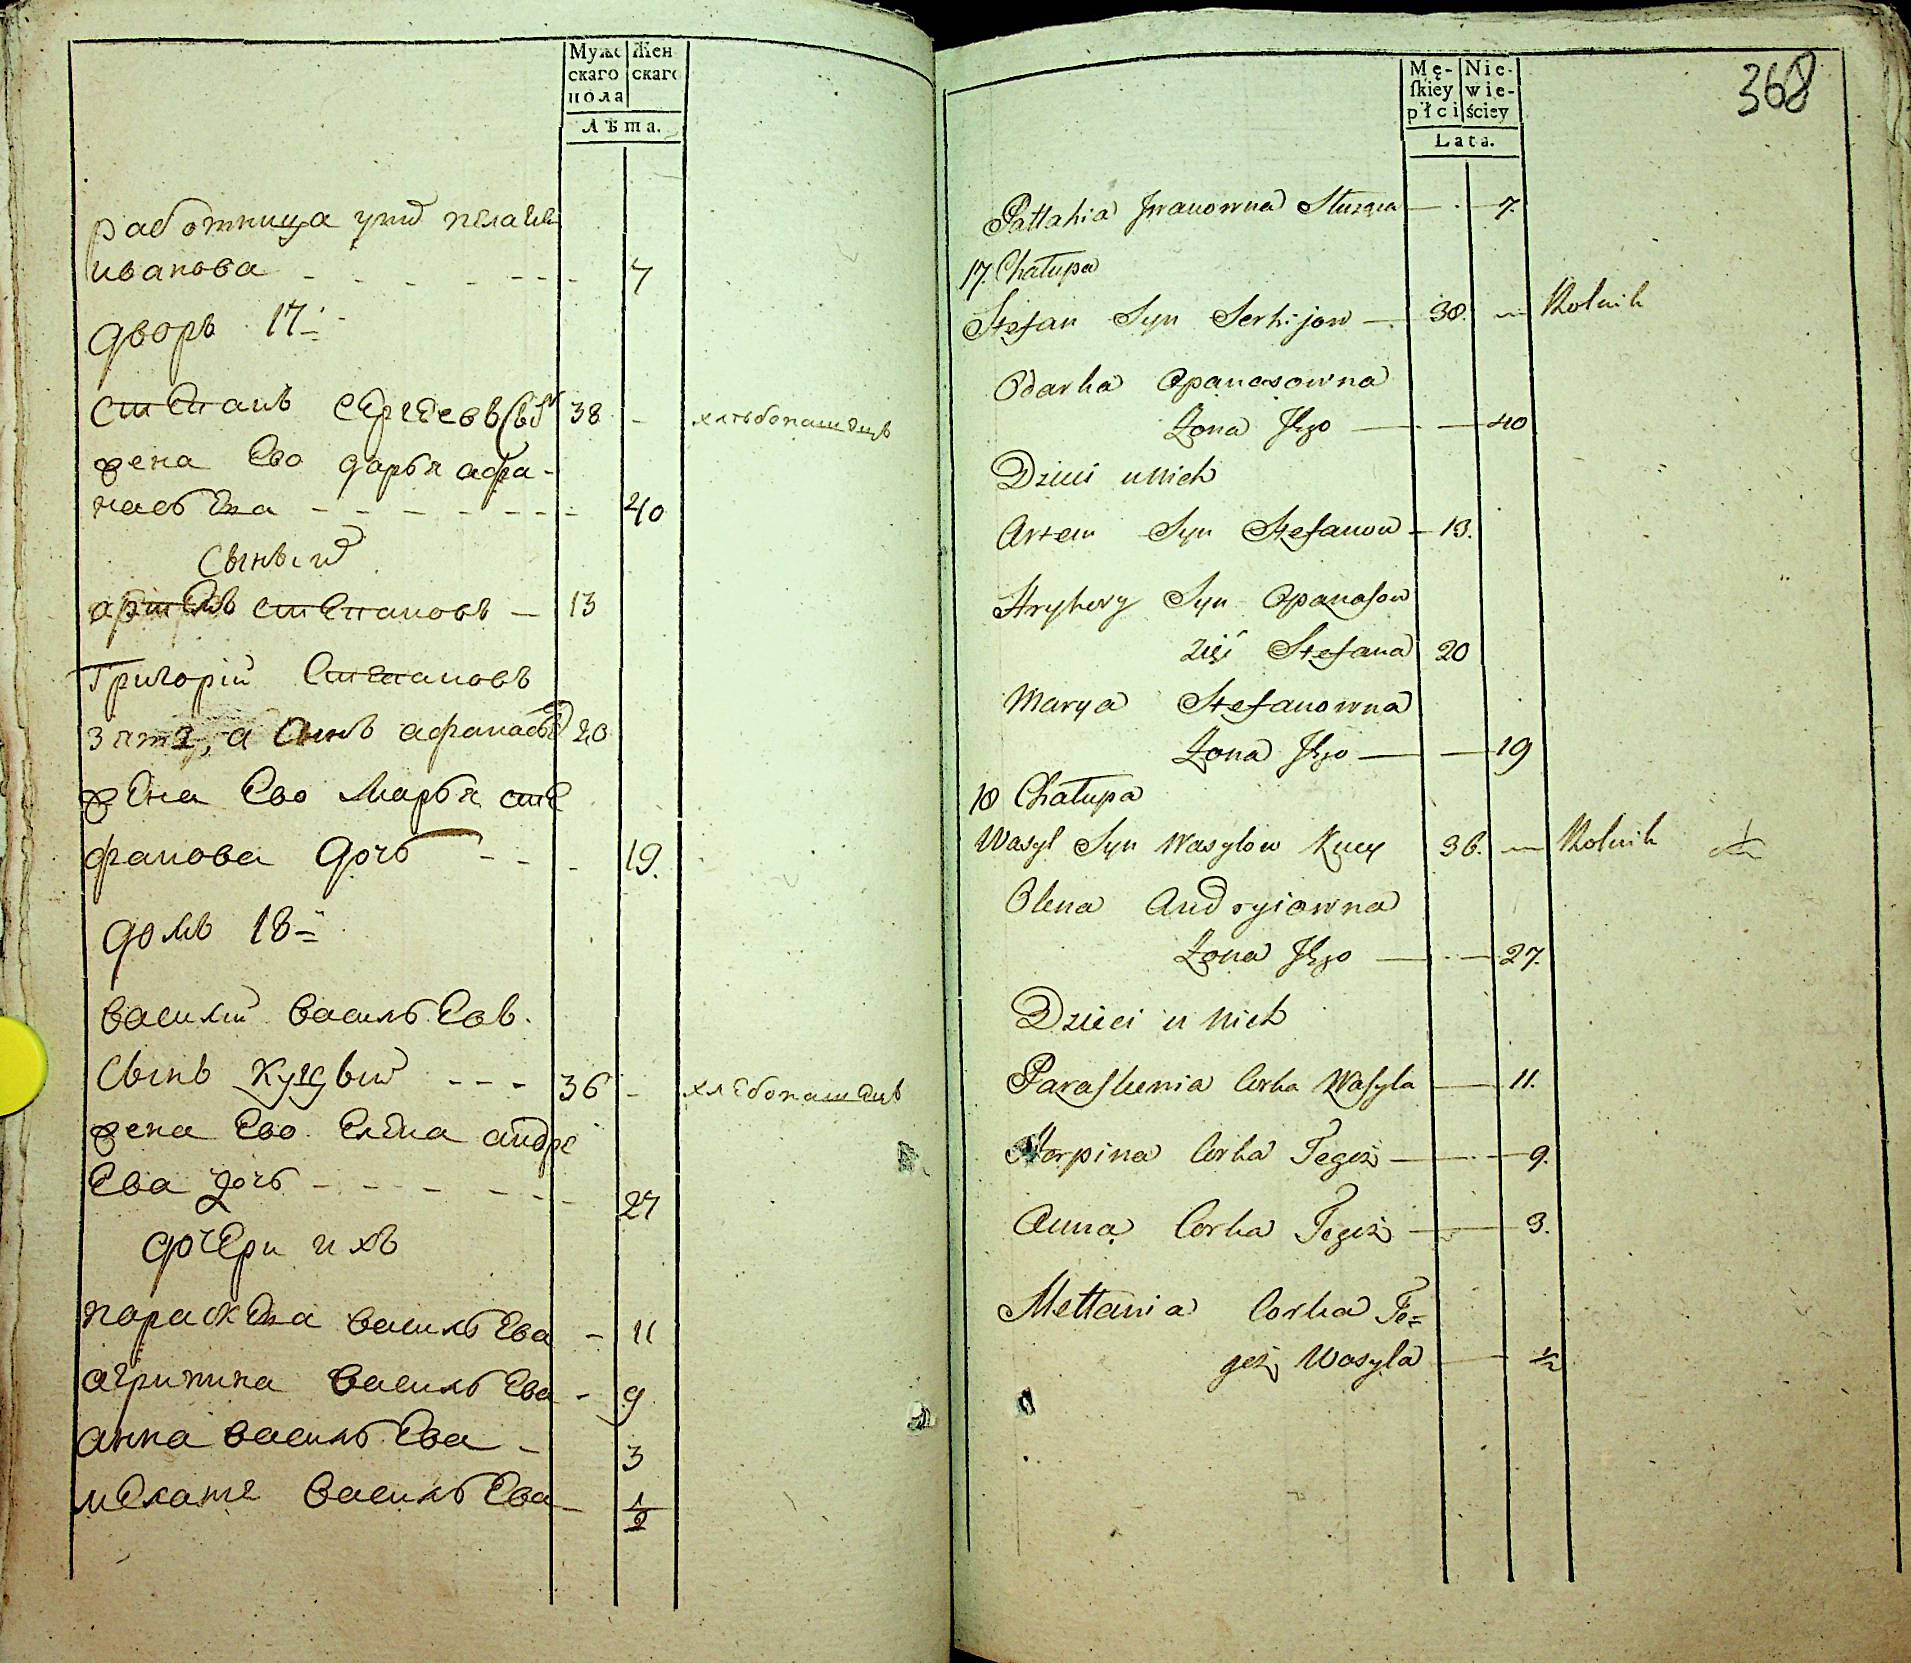 Мужс Жен
скаго скаго
пола
Лѣта.
работница у них пелагея
иванова - - - - - - 7
дворъ 17й
степанъ сергѣевъ сынъ 38 - хлѣбопашецъ
жена Ево дарья афа-
насьева - - - - - - - 40
Сынъ их
артемъ степановъ — 13
Григорій Степановъ
зять, а Сынъ афанасьев 20
жена Ево Марья сте
фанова дочь - - - 19.
домъ 18й
василий васильев.
Сынъ - - - 36 - хлебопашецъ
жена Ево Елена андре
Ева дочь - - - - - - 27
дочери ихъ
параскева васильева - 11
агрипина васильева - 9
анна васильева - 3
васильева - 1/2
368
Mę- Nie-
ſkiey wie-
płci ściey
Lata.
Pałłahia Jwanowna Służąca — . — 7.
17. Chałupa
Stefan Syn Serhijow — . 38. — Rolnik
Odarka Opanasowna
Zona Jego — . — 40
Dzieci u Nich
Artem Syn Stefanow — 13.
Hryhory Syn Opanaſow
Zięć Stefana 20
Marya Stefanowna
Zona Jego — — 19
18 Chałupa
Wasyl Syn Wasylow 36. — Rolnik
Olena Andryiowna
Zona Jego — . — 27.
Dzieci u Nich
Paraſkewia Corka Waſyla — 11.
Horpina Corka Tegoż — . — 9.
Anna Corka Tegoż — 3.
Mełłania Corka Te=
goż Wasyla — 1/2